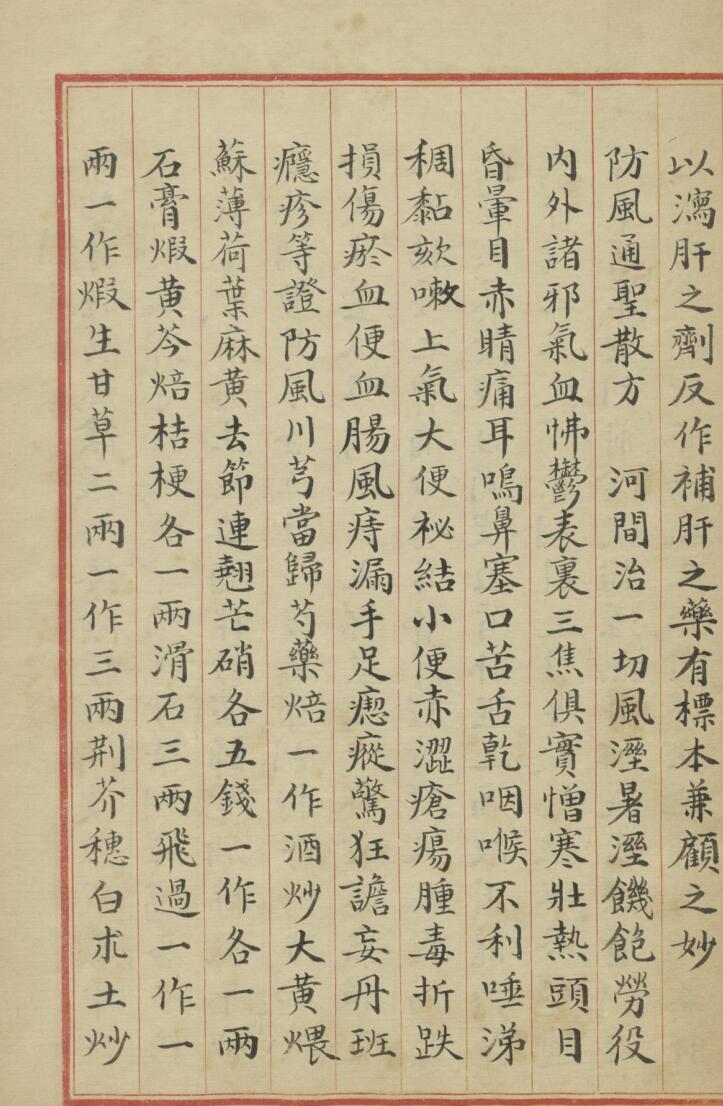 以瀉肝之劑反作補肝之藥有標本兼顧之妙
防風通聖散方 河間治一切風溼暑溼饑飽勞役
內外諸邪氣血怫鬱表裏三焦俱實憎寒壯熱頭目
昏暈目赤睛痛耳鳴鼻塞口苦舌乾咽喉不利唾涕
稠黏欬嗽上氣大便祕結小便赤澀瘡瘍腫毒折跌
損傷瘀血便血腸風痔漏手足瘛瘲驚狂譫妄丹斑
癮疹等證防風川芎當歸芍藥焙一作酒炒大黃煨
蘇薄荷葉麻黃去節連翹芒硝各五錢一作各一兩
石膏煆黃芩焙桔梗各一兩滑石三兩飛過一作一
兩一作煆生甘草二兩一作三兩荆芥穗白朮土炒